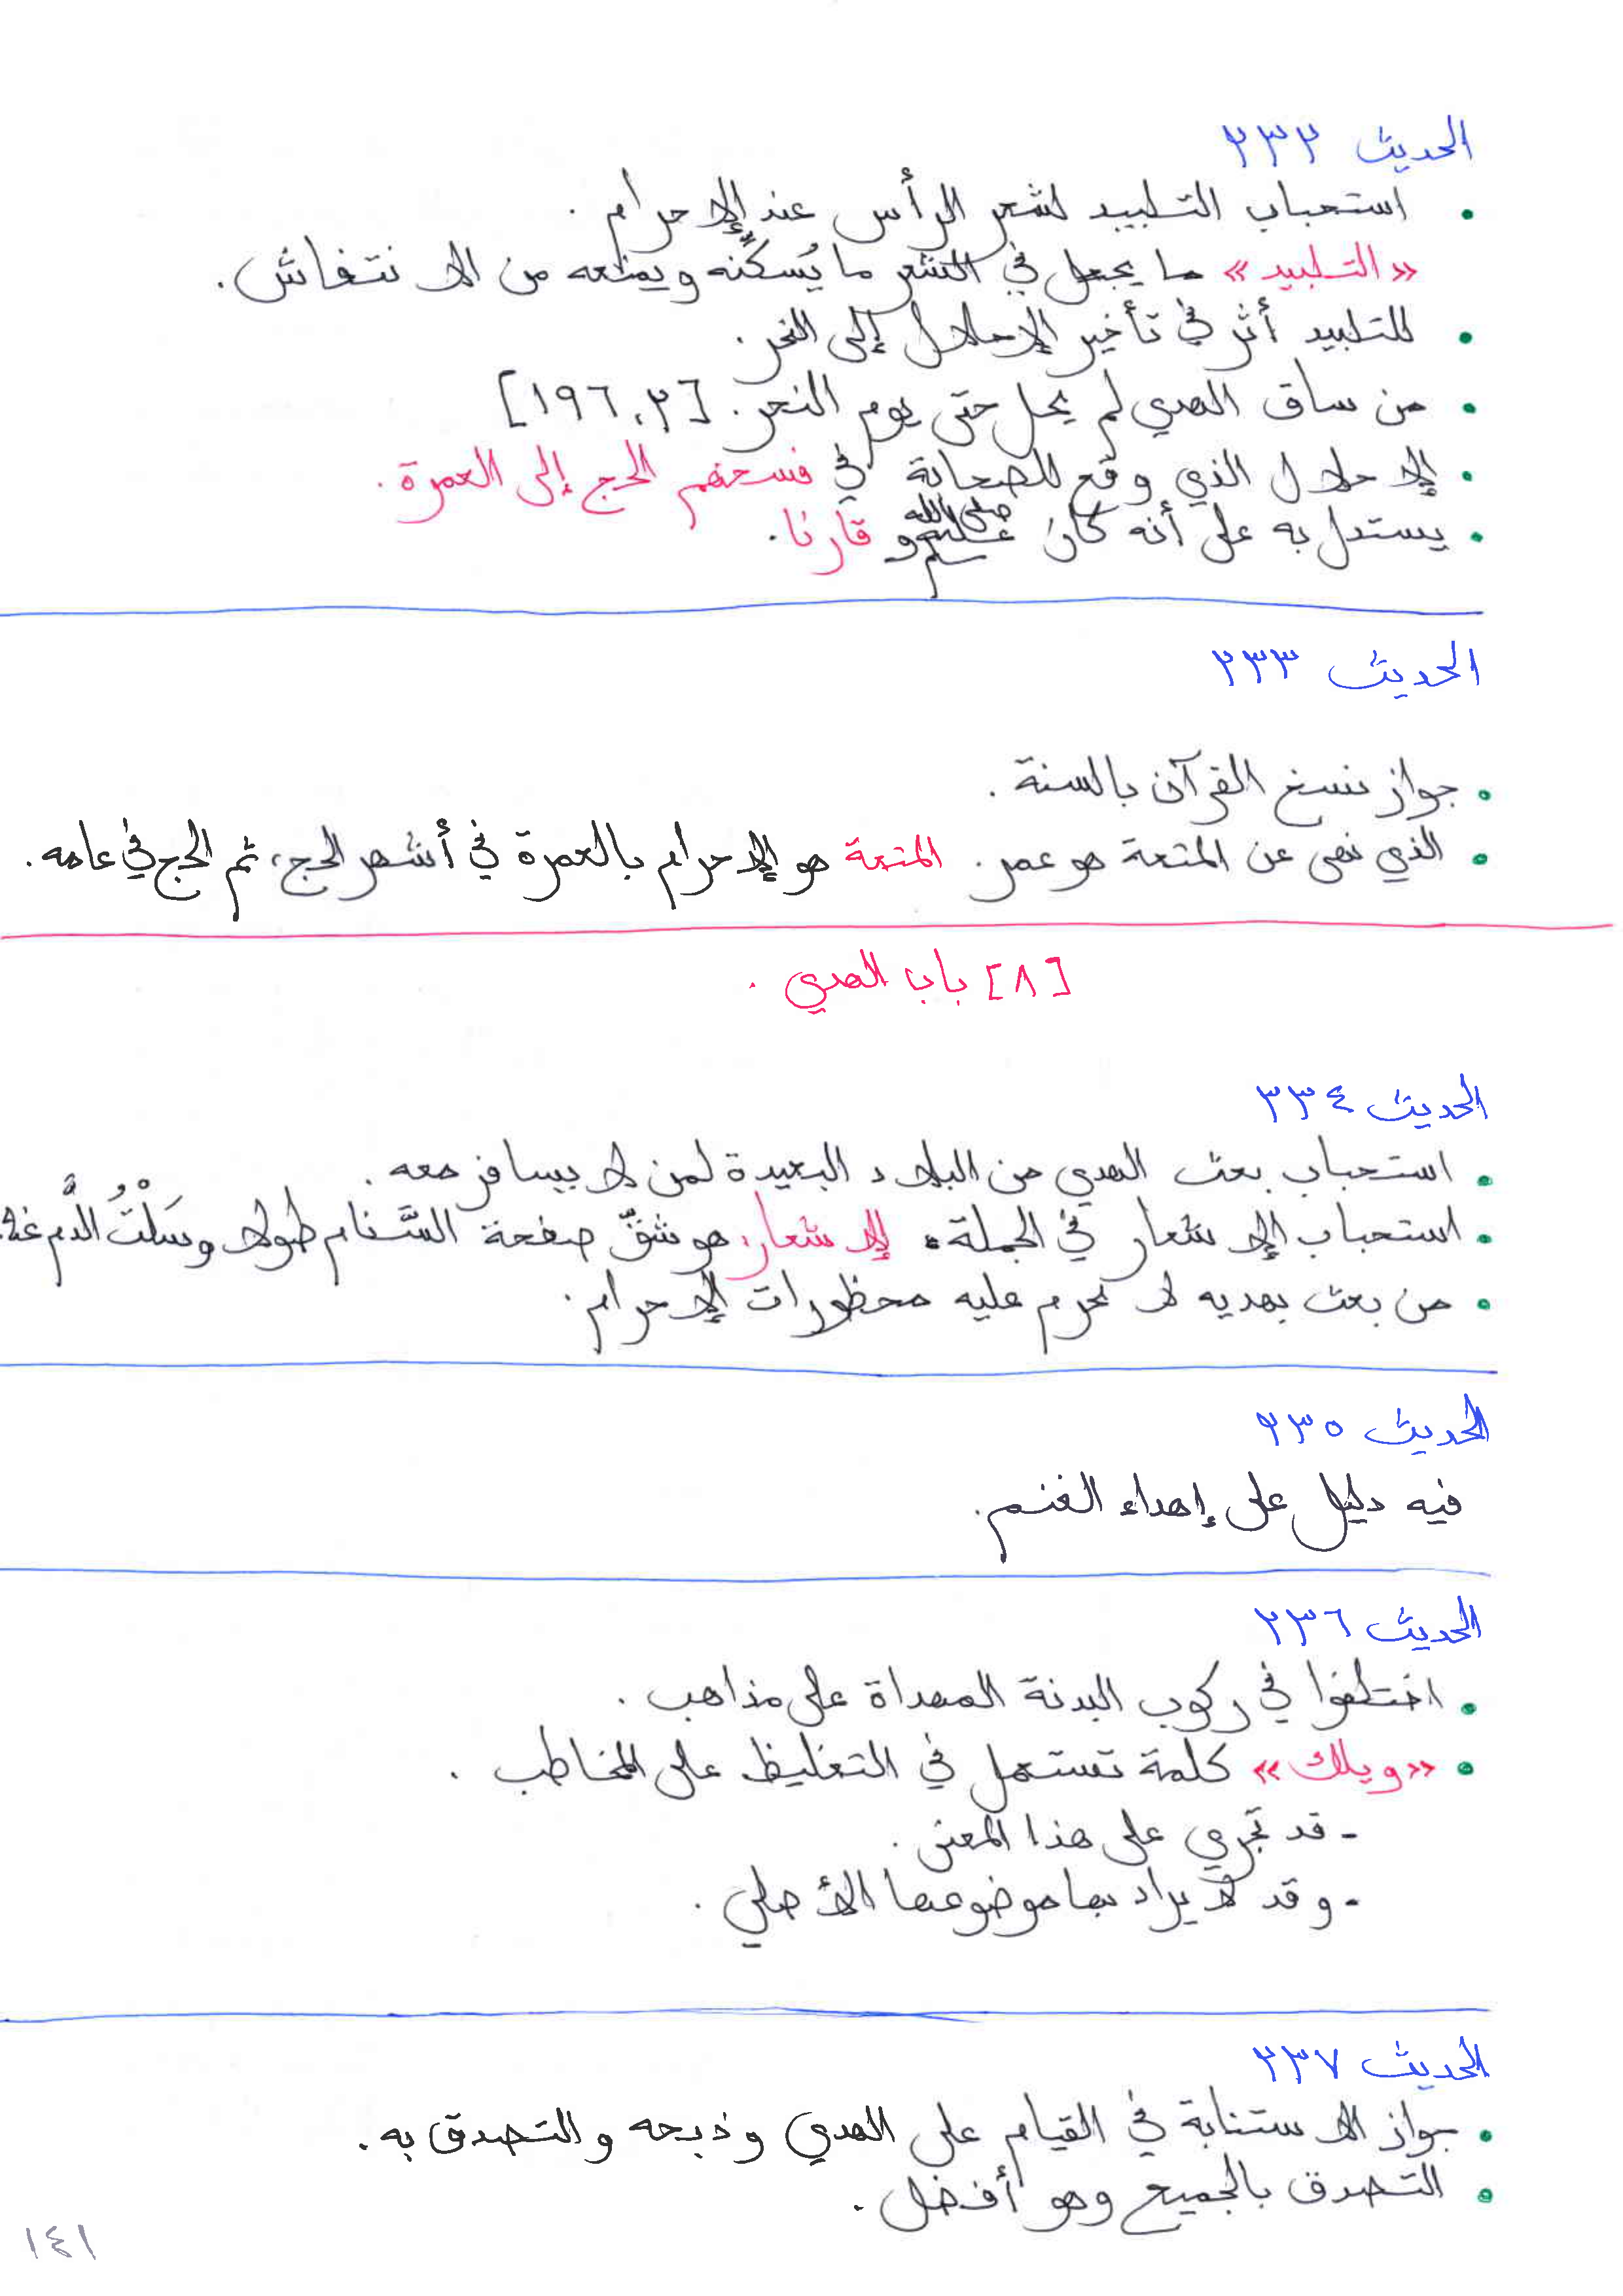 الحديث ٢٣٢
• استحباب التلبيد لشعر الرأس عند الإحرام.
«التلبيد» ما يجعل في الشعر ما يُسكّنه ويمنعه من الانتفاش.
• للتلبيد أثر في تأخير الإحلال إلى النحر.
• من ساق الهدي لم يحل حتى يوم النحر. [٢، ١٩٦]
• الإحلال الذي وقع للصحابة في فسخهم الحج إلى العمرة.
• يستدل به على أنه كان صلى الله عليه وسلم قارنا.
الحديث ٢٣٣
• جواز نسخ القرآن بالسنة.
• الذي نهى عن المتعة هو عمر. المتعة هو الإحرام بالعمرة في أشهر الحج، ثم الحج في عامه.
[٨] باب الهدي.
الحديث ٢٣٤
• استحباب بعث الهدي من البلاد البعيدة لمن لا يسافر معه.
• استحباب الإشعار في الجملة. الإشعار: هو شقّ صفحة السَّنام طولا وسَلْتُ الدَّم عنه.
• من بعث بهديه لا تحرم عليه محظورات الإحرام.
الحديث ٢٣٥
فيه دليل على إهداء الغنم.
الحديث ٢٣٦
• اختلفوا في ركوب البدنة المهداة على مذاهب.
• «ويلك» كلمة تستعمل في التغليظ على المخاطب.
- قد تجري على هذا المعنى.
- وقد لا يراد بها موضوعها الأصلي.
الحديث ٢٣٧
• جواز الاستنابة في القيام على الهدي وذبحه والتصدق به.
• التصدق بالجميع وهو أفضل.
١٤١